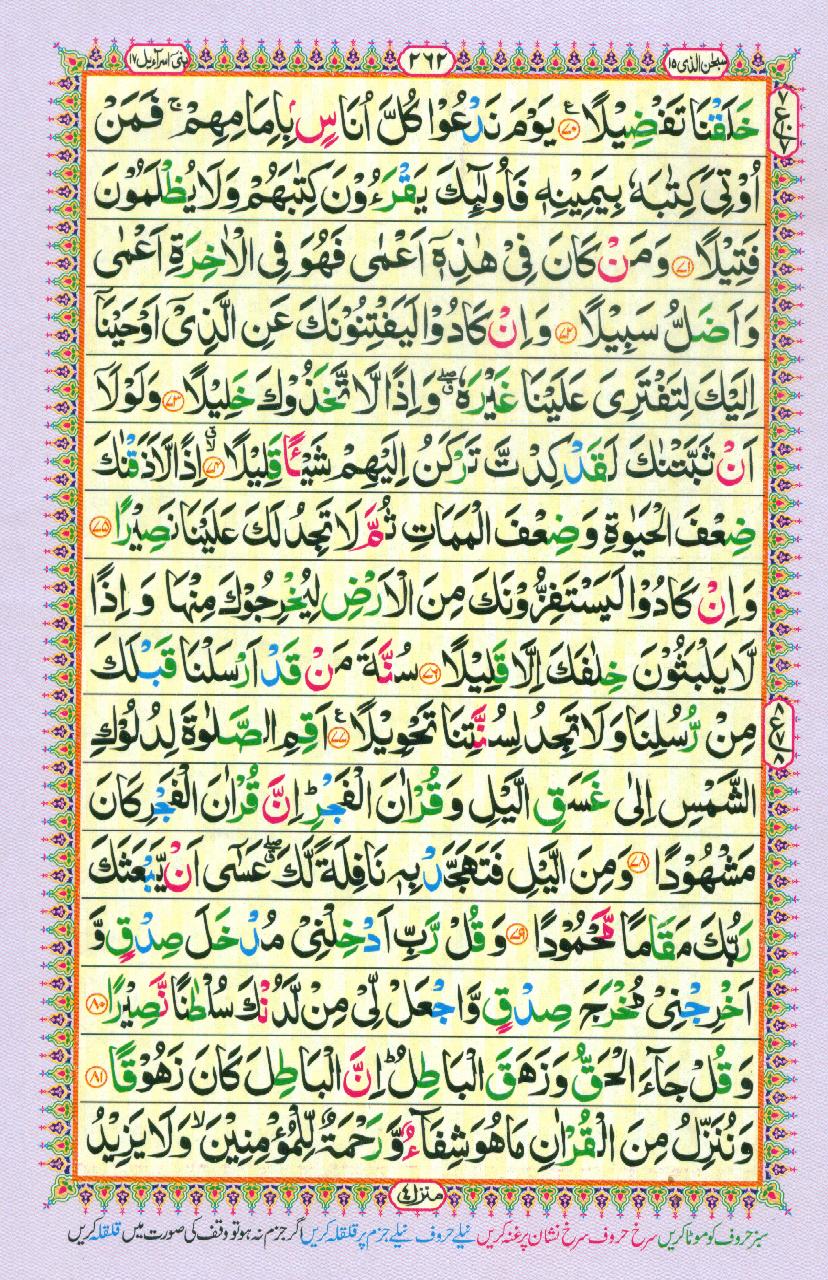 سبحٰن الذی ١٥
٢٦٢
بنی اسرآءیل ١٧
خَلَقْنَا تَفْضِيْلًا ؏ ﴿٧٠﴾ يَوْمَ نَدْعُوْا كُلَّ اُنَاسٍۭ بِاِمَامِهِمْ ۚ فَمَنْ
اُوْتِىَ كِتٰبَهٗ بِيَمِيْنِهٖ فَاُولٰٓئِكَ يَقْرَءُوْنَ كِتٰبَهُمْ وَلَا يُظْلَمُوْنَ
فَتِيْلًا ﴿٧١﴾ وَمَنْ كَانَ فِىْ هٰذِهٖۤ اَعْمٰى فَهُوَ فِى الْاٰخِرَةِ اَعْمٰى
وَاَضَلُّ سَبِيْلًا ﴿٧٢﴾ وَاِنْ كَادُوْا لَيَفْتِنُوْنَكَ عَنِ الَّذِىْۤ اَوْحَيْنَاۤ
اِلَيْكَ لِتَفْتَرِىَ عَلَيْنَا غَيْرَهٗ ۖق وَاِذًا لَّاتَّخَذُوْكَ خَلِيْلًا ﴿٧٣﴾ وَلَوْلَاۤ
اَنْ ثَبَّتْنٰكَ لَقَدْ كِدْتَّ تَرْكَنُ اِلَيْهِمْ شَيْـًٔا قَلِيْلًا ۙق ﴿٧٤﴾ اِذًا لَّاَذَقْنٰكَ
ضِعْفَ الْحَيٰوةِ وَضِعْفَ الْمَمَاتِ ثُمَّ لَا تَجِدُ لَكَ عَلَيْنَا نَصِيْرًا ﴿٧٥﴾
وَاِنْ كَادُوْا لَيَسْتَفِزُّوْنَكَ مِنَ الْاَرْضِ لِيُخْرِجُوْكَ مِنْهَا وَاِذًا
لَّا يَلْبَثُوْنَ خِلٰفَكَ اِلَّا قَلِيْلًا ﴿٧٦﴾ سُنَّةَ مَنْ قَدْ اَرْسَلْنَا قَبْلَكَ
مِنْ رُّسُلِنَا وَلَا تَجِدُ لِسُنَّتِنَا تَحْوِيْلًا ؏ ﴿٧٧﴾ اَقِمِ الصَّلٰوةَ لِدُلُوْكِ
الشَّمْسِ اِلٰى غَسَقِ الَّيْلِ وَقُرْاٰنَ الْفَجْرِ ؕ اِنَّ قُرْاٰنَ الْفَجْرِ كَانَ
مَشْهُوْدًا ﴿٧٨﴾ وَمِنَ الَّيْلِ فَتَهَجَّدْ بِهٖ نَافِلَةً لَّكَ ۖق عَسٰۤى اَنْ يَّبْعَثَكَ
رَبُّكَ مَقَامًا مَّحْمُوْدًا ﴿٧٩﴾ وَقُلْ رَّبِّ اَدْخِلْنِىْ مُدْخَلَ صِدْقٍ وَّ
اَخْرِجْنِىْ مُخْرَجَ صِدْقٍ وَّاجْعَلْ لِّىْ مِنْ لَّدُنْكَ سُلْطٰنًا نَّصِيْرًا ﴿٨٠﴾
وَقُلْ جَآءَ الْحَقُّ وَزَهَقَ الْبَاطِلُ ؕ اِنَّ الْبَاطِلَ كَانَ زَهُوْقًا ﴿٨١﴾
وَنُنَزِّلُ مِنَ الْقُرْاٰنِ مَا هُوَ شِفَآءٌ وَّرَحْمَةٌ لِّلْمُؤْمِنِيْنَ ۙ وَلَا يَزِيْدُ
منزل ٤
سبز حروف کو موٹا کریں سرخ حروف سرخ نشان پر غنہ کریں نیلے حروف نیلے جزم پر قلقلہ کریں اگر جزم نہ ہو تو وقف کی صورت میں قلقلہ کریں